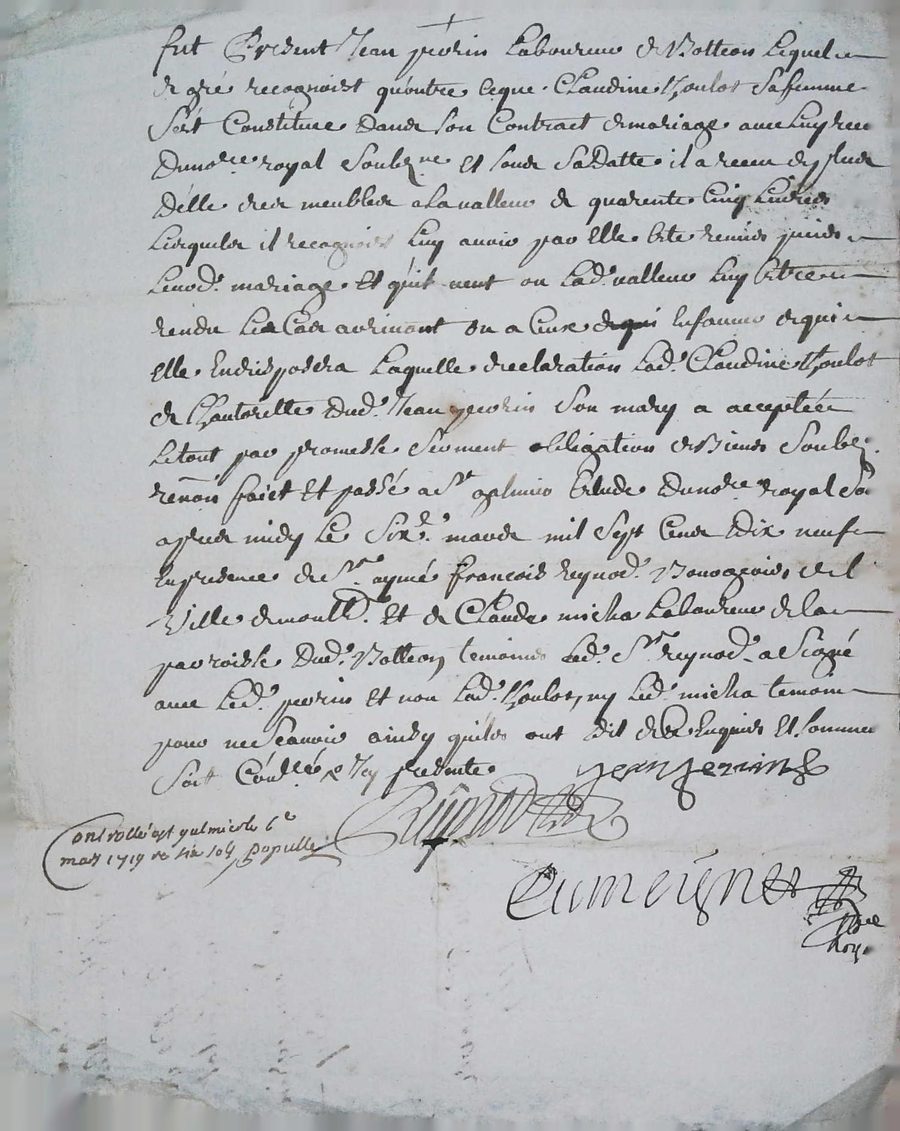 fut Present Jean perrin Laboureur de Botteon Lequel
de gré recognoist qu'outre ceque Claudine Thoulot Safemme
Sest Constituee Dans Son Contract de mariage avec Luy receu
Dunore royal Soubzne Et Sous Sa Datte il a receu de plus
Delle des meubles a La valleur de quarente Cinq Livres
Lesquels il recognoist Luy avoir par elle Este remis
Leurd. mariage Et qu'il veut ou Lad. valleur Luy Estre
rendu Le Cas arrivant ou a Ceux de qui
elle En disposera Laquelle declaration Lad. Claudine Thoulot
de Lautorette Dud. Jean perrin Son mary a acceptée
Le tout par promesse Serment obligation de Biens Soubz.
renon faict Et passé a St galmier Estude Dunore royal
apres midy Le Sixe. mars mil Sept Cens Dix neuf
En presence de Sr. aymé François Reynod. Bourgeois de l
Ville de montb. Et de Claude micha Laboureur de la
parroisse Dud. Botteon temoins Led. Sr. reynod. a Signé
avec Led. perrin Et non Lad. Thoulot, ny Led. micha temoin
pour ne Scavoir ainsy qu'ils ont dit de ce Enquis Et Sommes
Soit Conllé presente
jean perrin
Reynod
Controllé a st galmier le 6e
mars 1719 re six sols populle
Cumeigner
nore
roy.